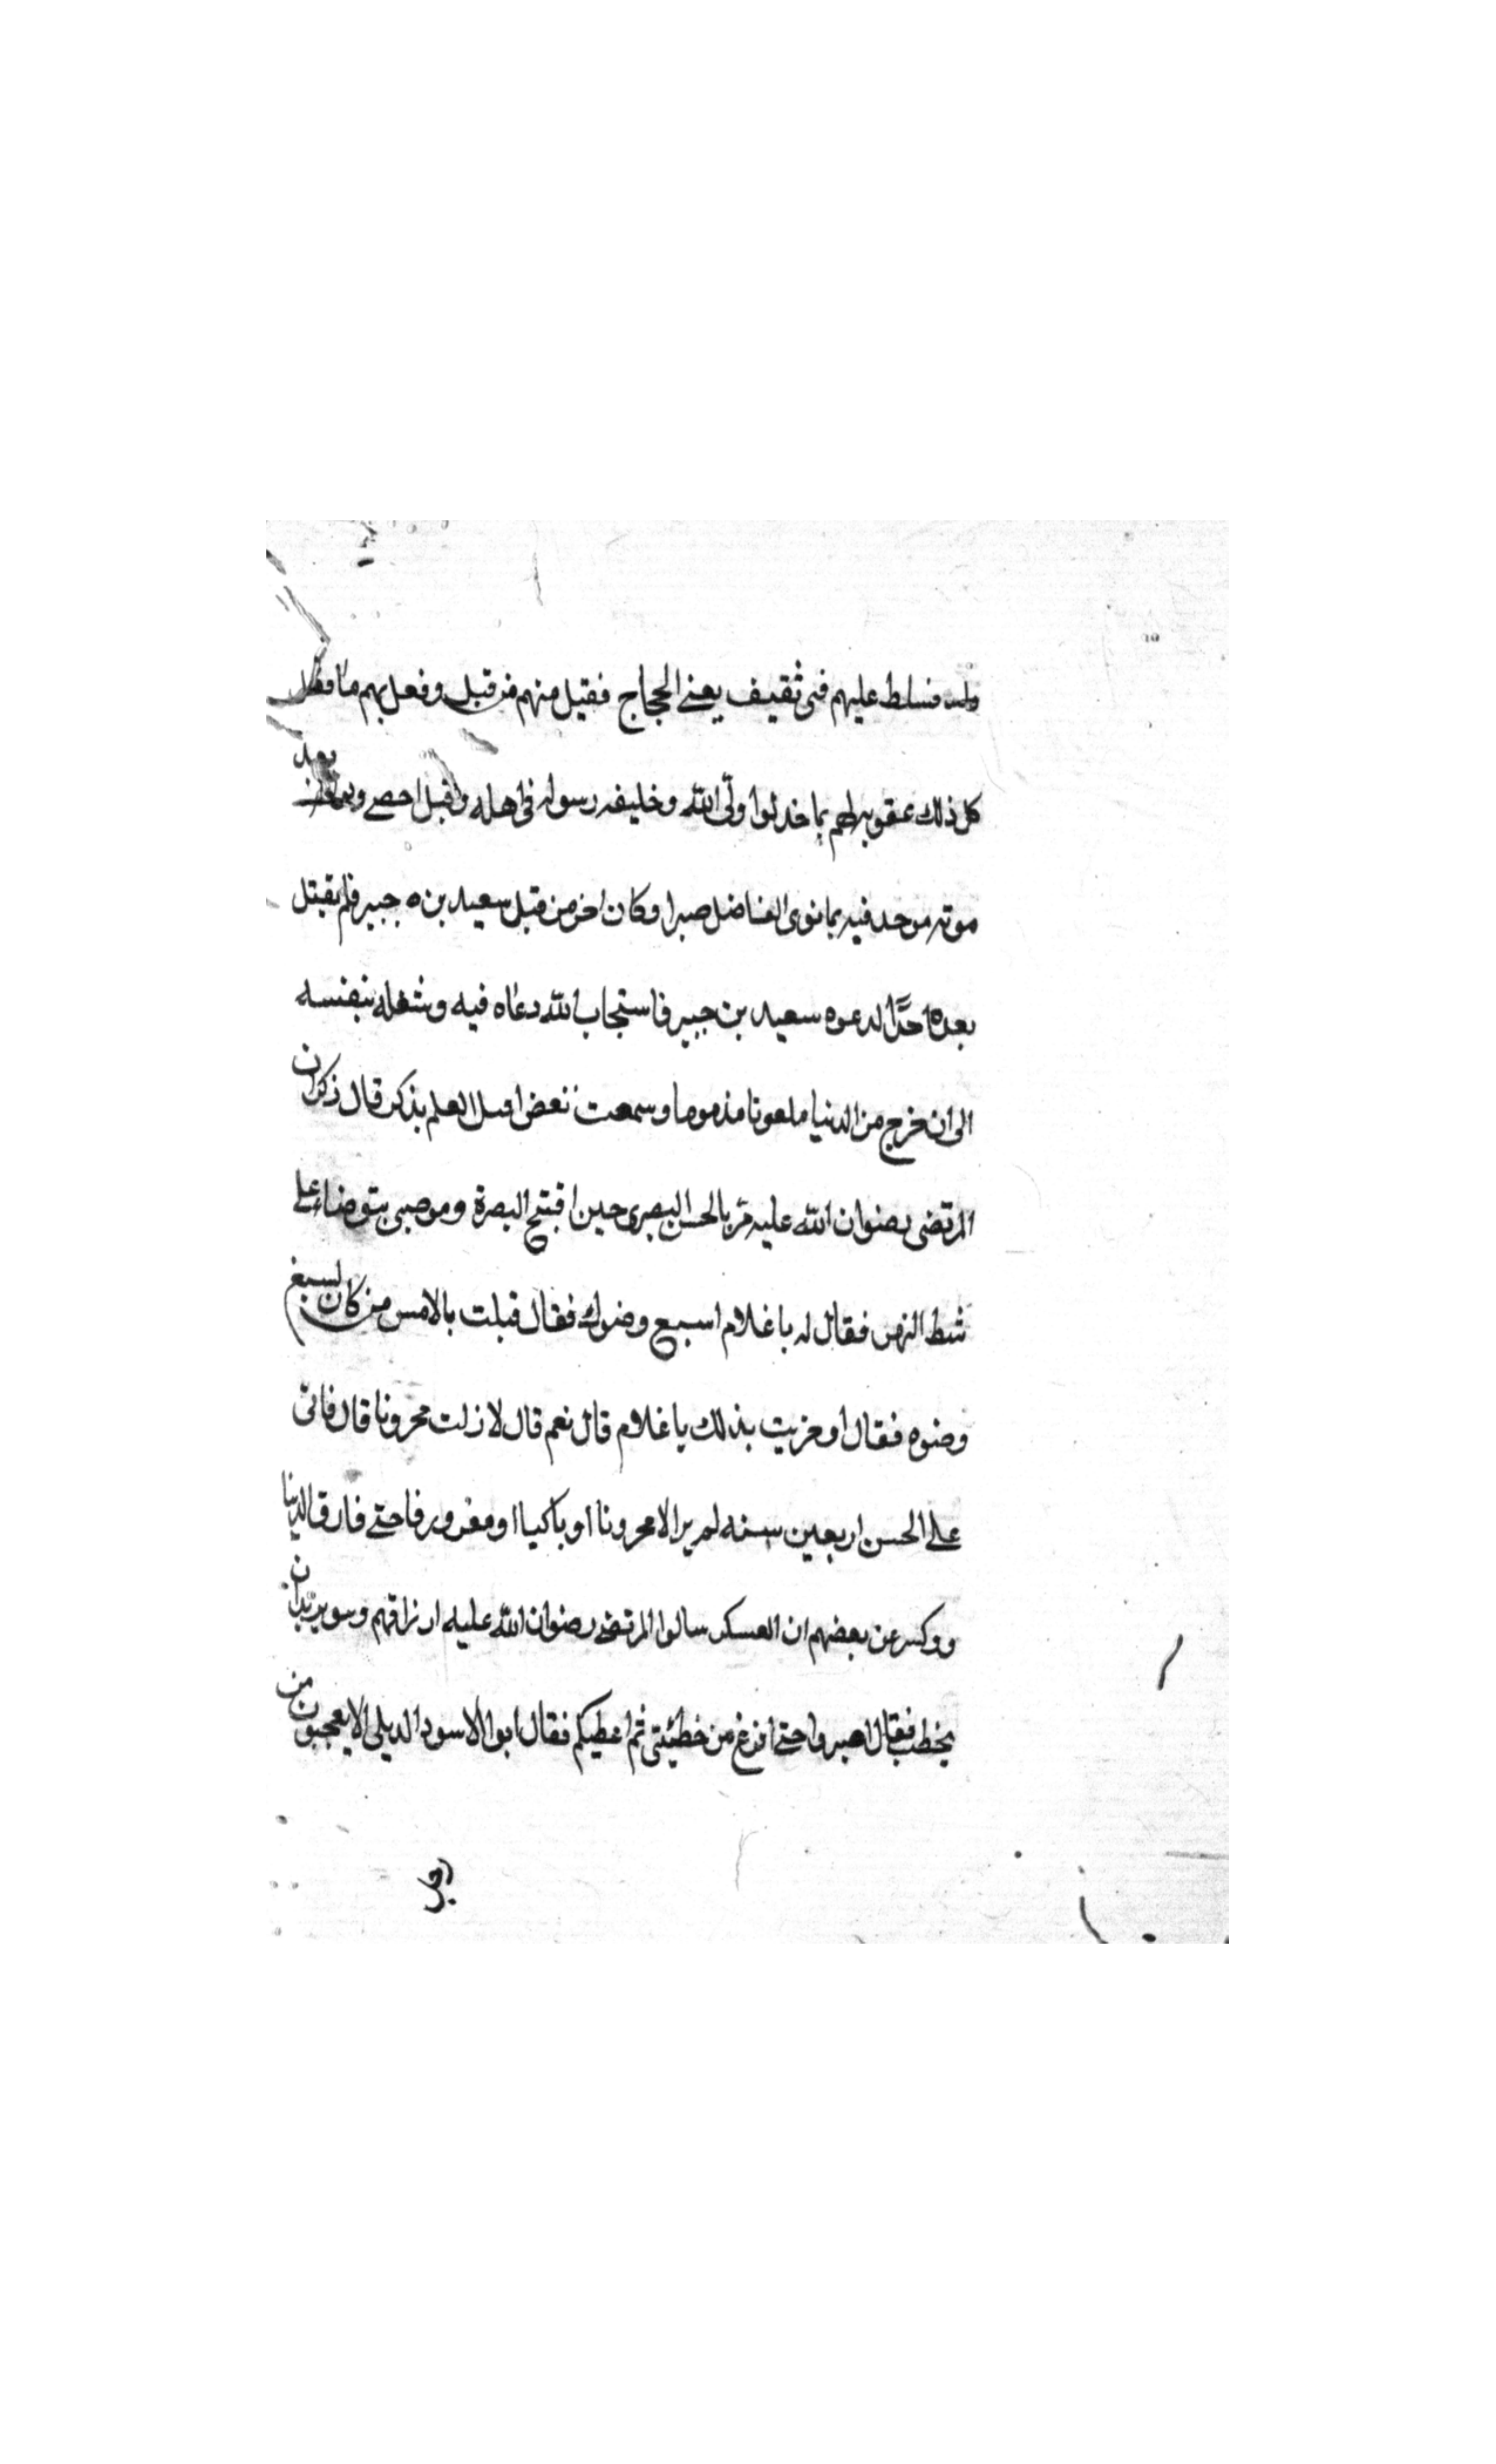 فسلط عليهم فتى ثقيف يعنى الحجاج فقيل منهم من قبل وفعل بهم ما فعل
كل ذلك عقوبه لهم بما خذلوا ولى الله وخليفه رسوله فى اهله بعد
موته فيه بما نوى الفاضل صبرا وكان اخر من قبل سعيد بن ه جبير فلم يقتل
بعده احدًا لدعوه سعيد بن جبير فاستجاب الله دعاه فيه وشغله بنفسه
الى ان خرج من الدنيا ملعونا مذموما وسمعت بعض اهل العلم يذكر قال ذكر ان
المرتضى رضوان الله عليه مر بالحسن البصرى حين افتتح البصرة وهو صبى يتوضاء على
شط النهر فقال له يا غلام اسبع وضوك فقال قبلت بالامس من كان يسبغ
وضوه فقال او عزيت بذلك يا غلام قال نعم قال لا زلت محزونا قال فاتى
على الحسن اربعين سنه لم ير الا محزونا او باكيا او حتى فارق الدنيا
وذكر عن بعضهم ان العسكر سالوا المرتضى رضوان الله عليه ارزاقهم وهو يريد ان
يخطب فقال اصبروا حتى افرغ من خطيئتى ثم اعطيكم فقال ابو الاسود الديلى الا يعجبون من